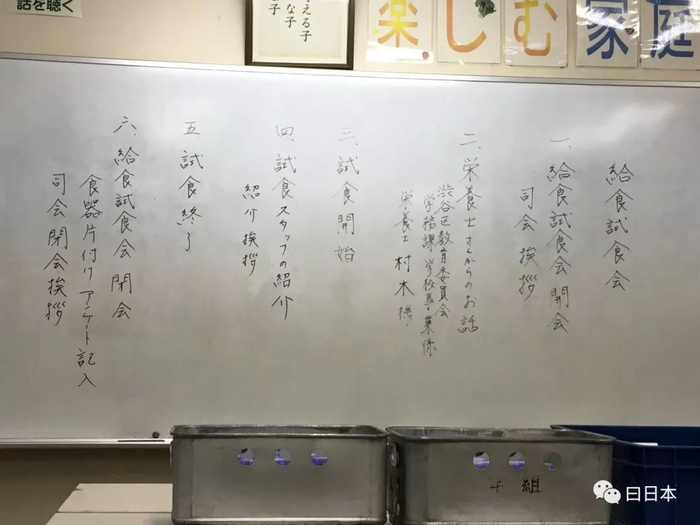 話を聴く
える子
な子
子
楽しむ
家庭
給食試食会
一、給食試食会 開会
司会 挨拶
二、栄養士さんからのお話
渋谷区教育委員会
学務課 学校事業係
栄養士 村木 様
三、試食開始
四、試食スタッフの紹介
紹介挨拶
五 試食終了
六、給食試食会 閉会
食器片付け アンケート記入
司会 閉会挨拶
組
曰日本